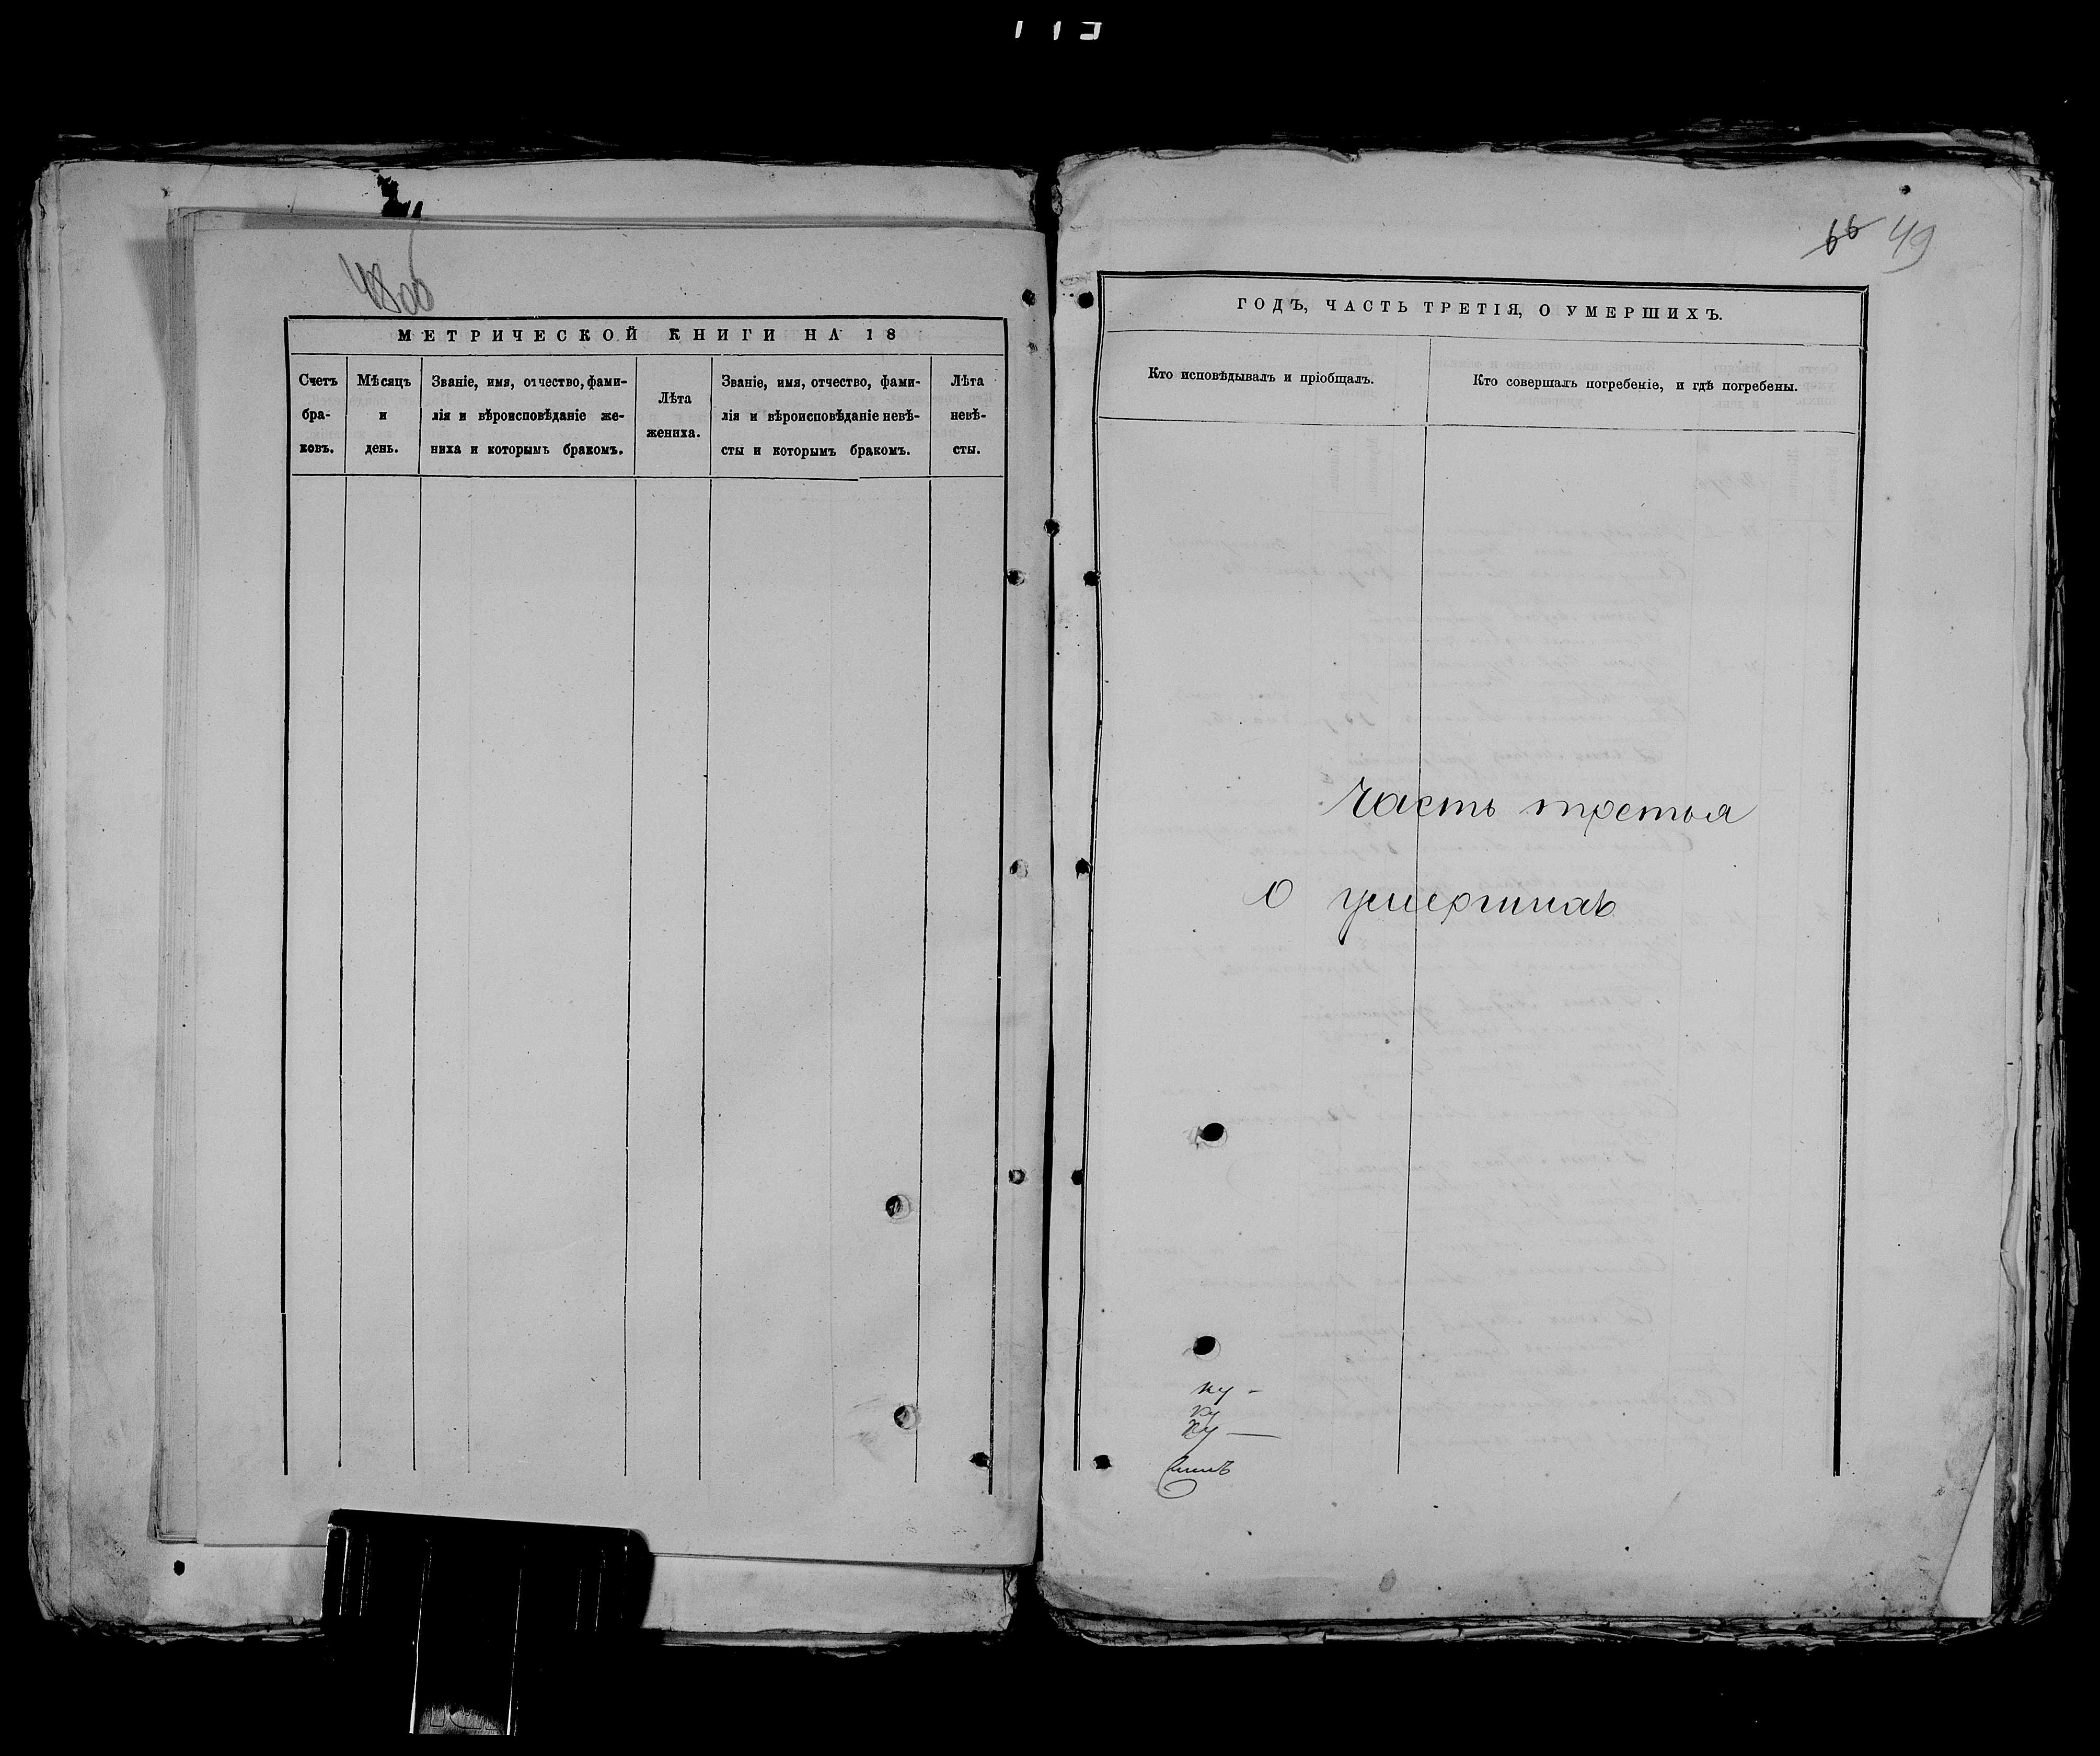 48об
МЕТРИЧЕСКОЙ КНИГИ НА 18
Счетъ бра- ковъ.
Мѣсяцъ и день.
Званіе, имя, отчество, фами- лія и вѣроисповѣданіе же- ниха и которымъ бракомъ.
Лѣта жениха.
Званіе, имя, отчество, фами- лія и вѣроисповѣданіе невѣ- сты и которымъ бракомъ.
Лѣта невѣ- сты.
66 49
ГОДЪ, ЧАСТЬ ТРЕТІЯ, О УМЕРШИХЪ.
Кто исповѣдывалъ и пріобщалъ.
Кто совершалъ погребеніе, и гдѣ погребены.
Часть третья
О умершихъ